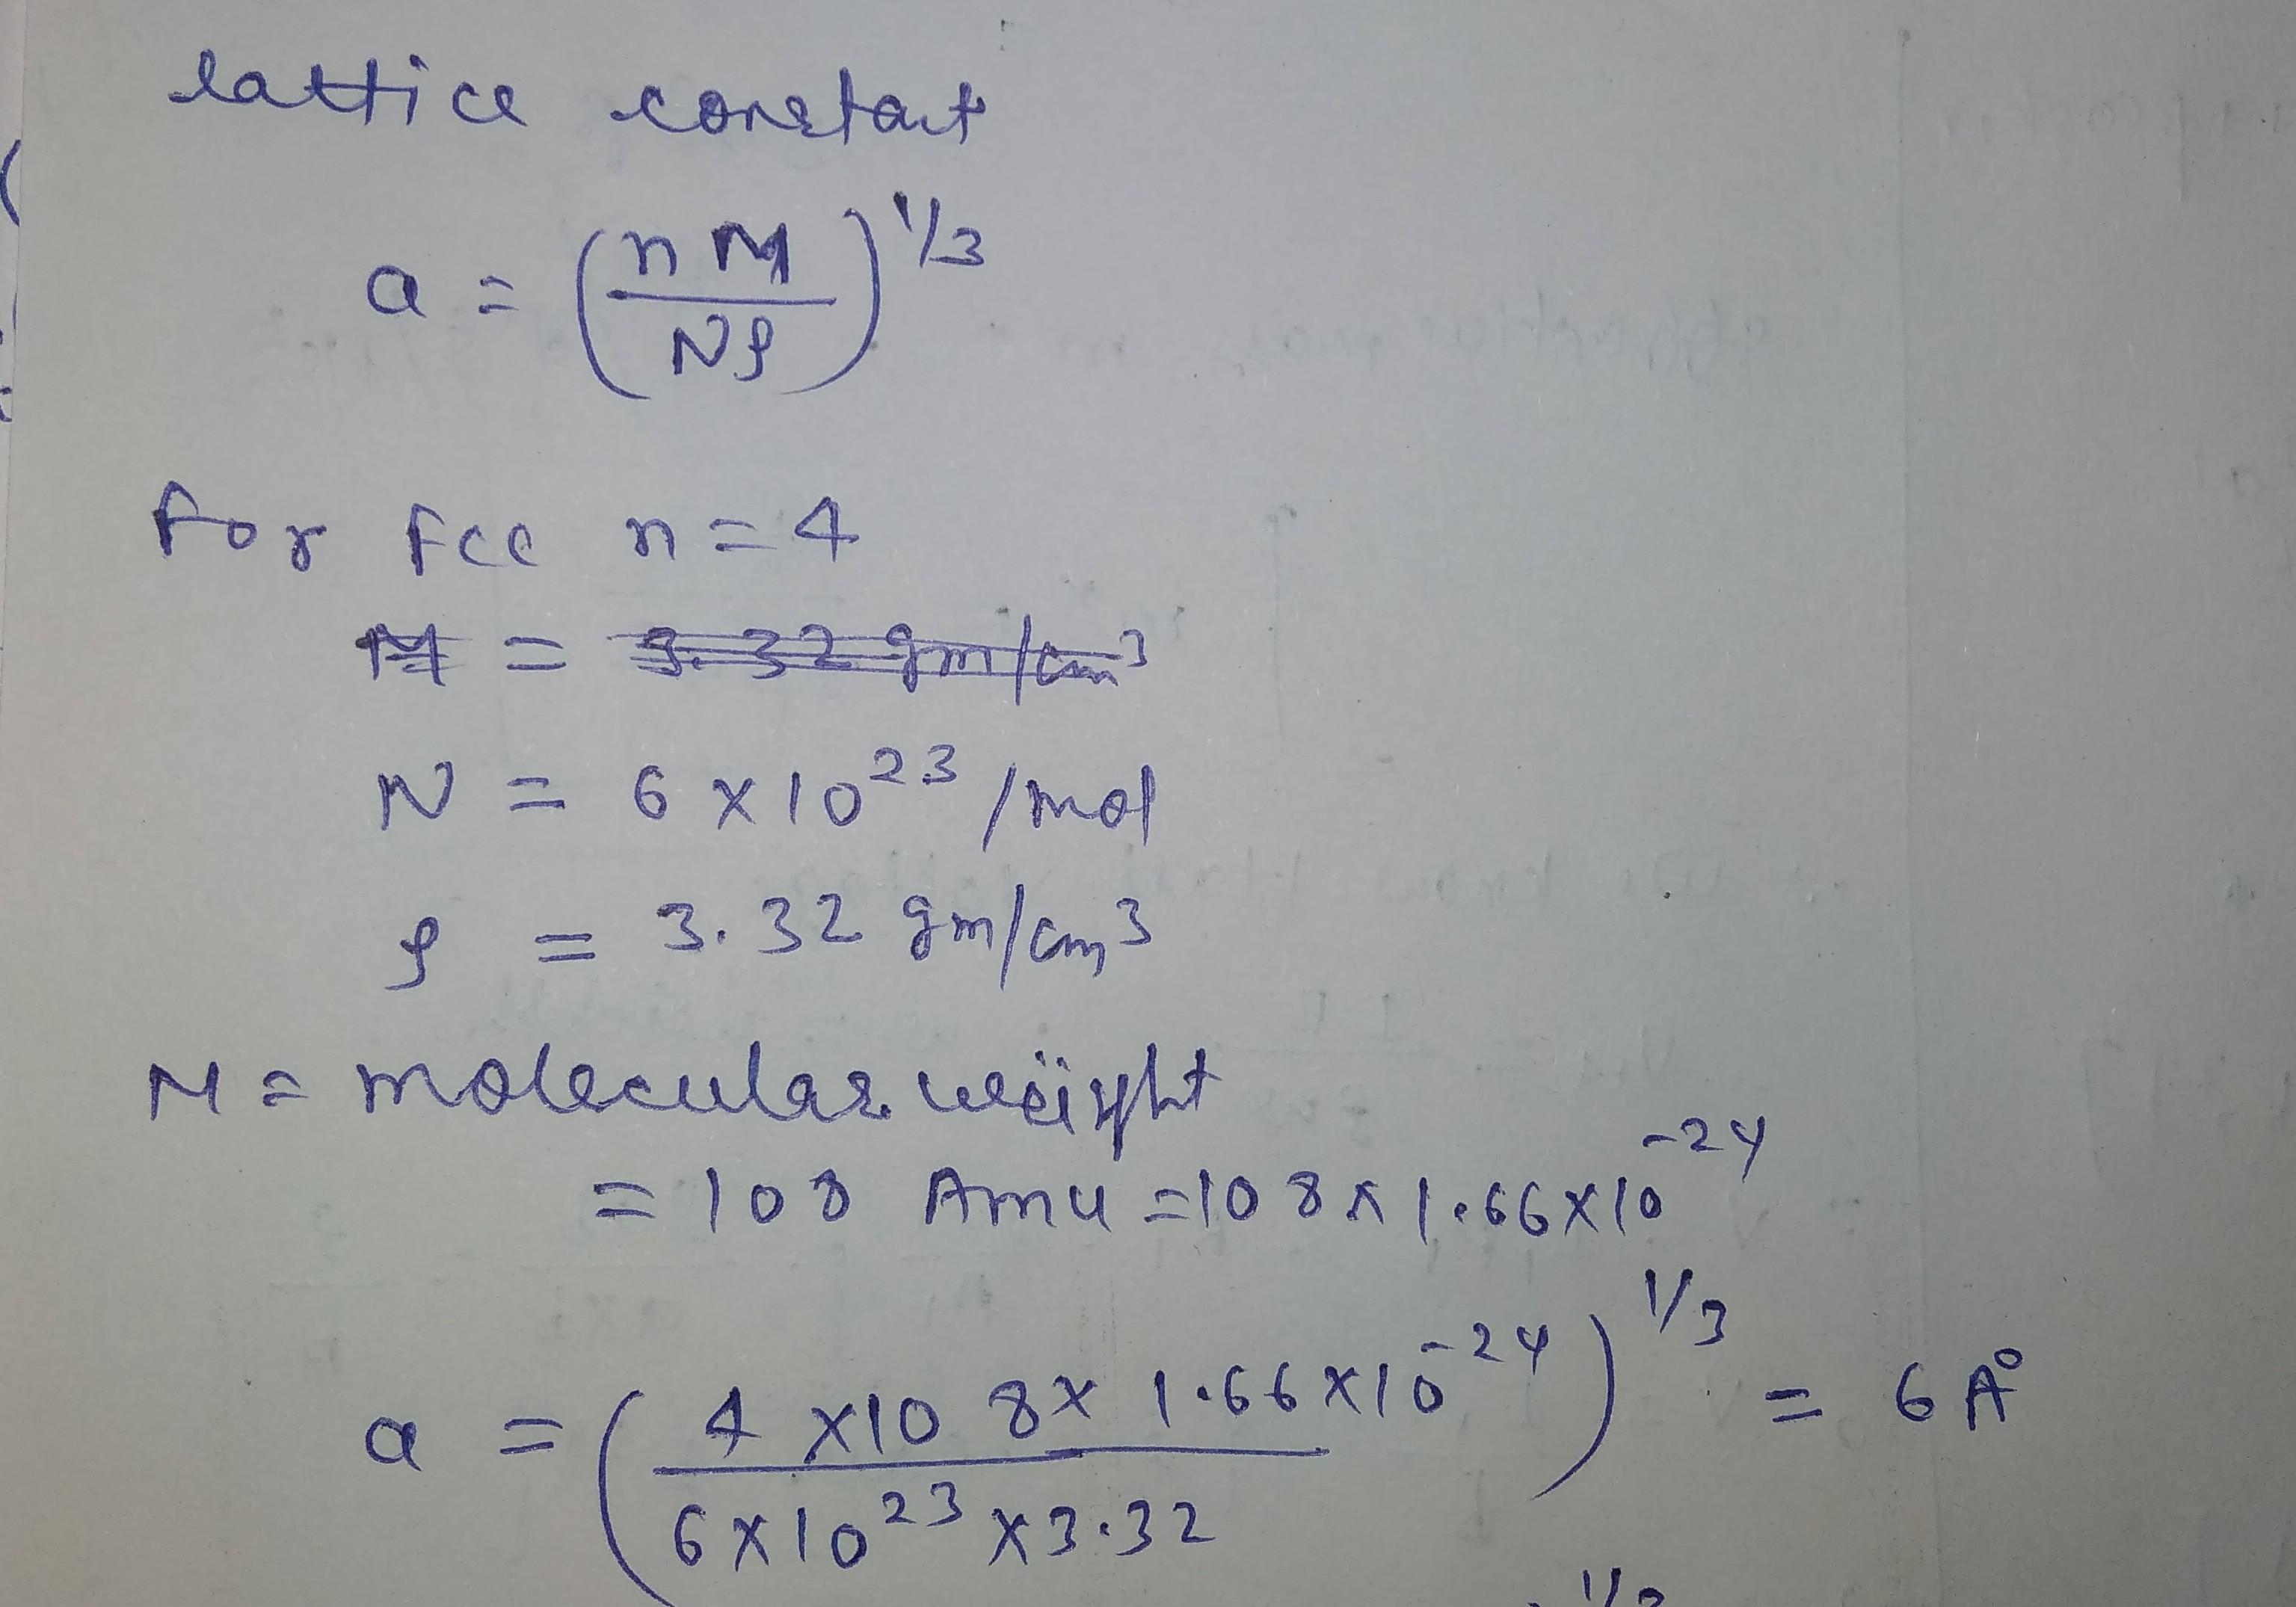 lattice constant
a = (nM/Nρ)^1/3
For fcc n = 4
M = 3.32 gm/cm³
N = 6 × 10²³ /mol
ρ = 3.32 gm/cm³
M = molecular weight
= 108 Amu = 108 × 1.66 × 10⁻²⁴
a = (4 × 108 × 1.66 × 10⁻²⁴ / 6 × 10²³ × 3.32)^1/3 = 6 A°